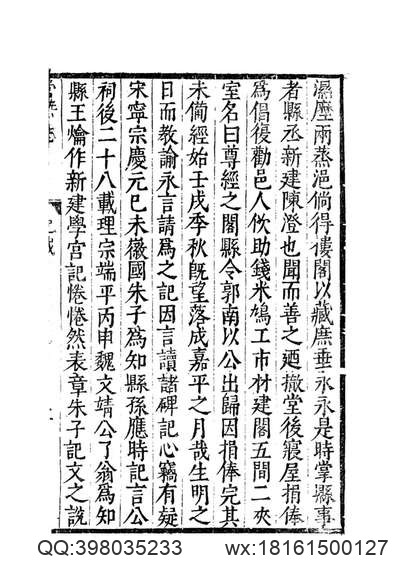 濕壓兩蒸浥倘得僂閣以藏庶垂永永是時掌縣事
者縣丞新建陳澄也聞而善之廼撤堂後寢屋捐俸
爲倡復勸邑人佽助錢米鳩工市材建閣五間二夾
室名曰尊經之閣縣令郭南以公出歸因捐俸完其
未備經始壬戌季秋旣望落成嘉平之月哉生明之
日而教諭永言請爲之記因言讀諸碑記心竊有疑
宋寧宗慶元己未徽國朱子爲知縣孫應時記言公
祠後二十八載理宗端平丙申魏文靖公了翁爲知
縣王爚作新建學宮記惓惓然表章朱子記文之說
QQ:398035233
wx:18161500127